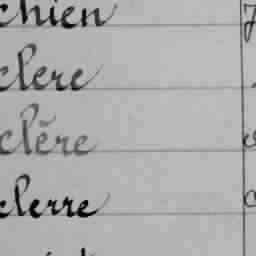 chien
clere
clĕre
clerre